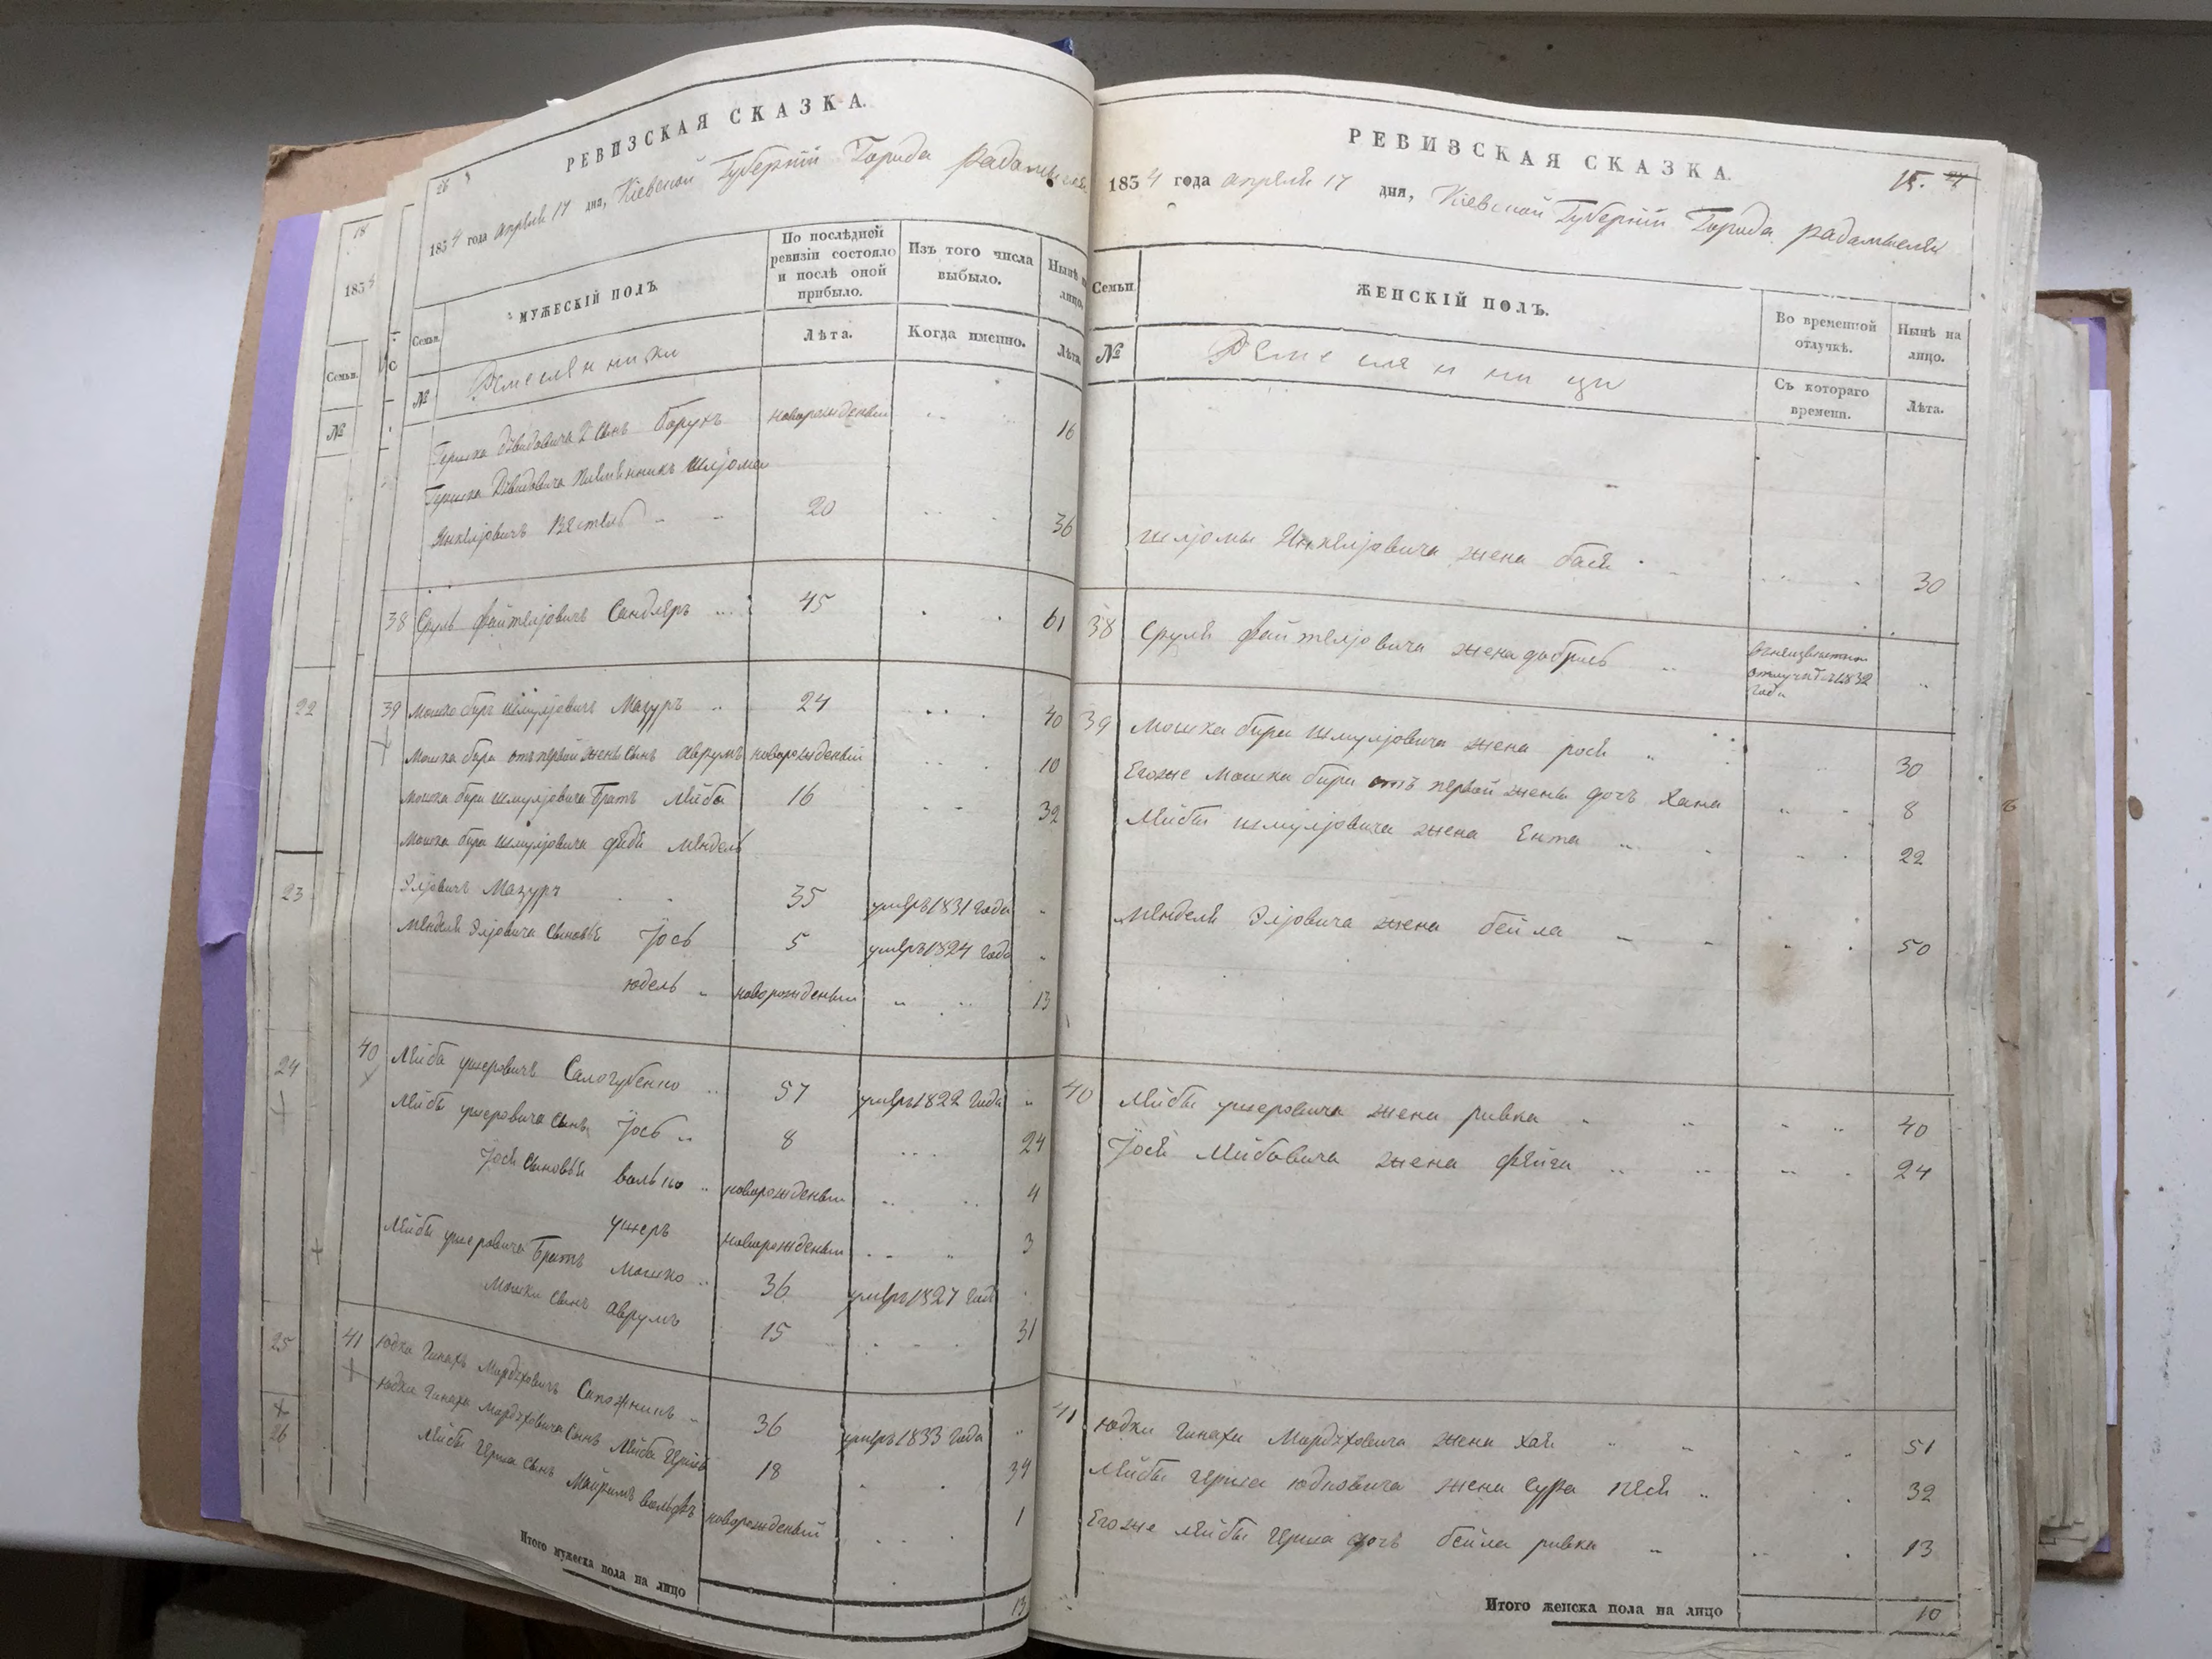 18
1835
Семьи.
№
22
23
24
25
26
26
РЕВИЗСКАЯ СКАЗКА.
1834 года апреля 17 дня, Кіевской Губерніи Города радомысля
Семьи.
МУЖЕСКІЙ ПОЛЪ.
По послѣдней ревизіи состояло и послѣ оной прибыло.
Изъ того числа выбыло.
Нынѣ на лицо.
№
Ремеслѣнники
Лѣта.
Когда именно.
Лѣта.
Гершка Давидовича 2 сынъ Борухъ новорожденый 16
Гершка Давидовича племѣнникъ Шлјома
Янкелјовичъ 20 36
38 Сруль файтелјовичъ Сандлеръ 45 61
39 Мошко биръ шмулјовичъ Мазуръ 24 40
Мошка бира отъ первой жены сынъ аврумъ новорожденый 10
Мошка бира шмулјовича братъ лейба 16 32
Мошка бира шмулјовича дядя мендель
Элјовичъ Мазуръ 35 умеръ 1831 года
менделя Элјовича сыновья јось 5 умеръ 1824 года
юдель новорожденый 13
40 лейба ушеровичъ Салогубенко 57 умеръ 1822 года
лейбы ушеровича сынъ јось 8 24
јося сыновья волько новорожденый 4
ушеръ новорожденый 3
лейбы ушеровича братъ мошко 36 умеръ 1827 года
мошки сынъ аврумъ 15 31
41 юдка Мордуховичъ Сапожникъ 36 умеръ 1833 года
юдки Мордуховича сынъ лейба гершъ 18 34
лейбы герша сынъ Майрымъ вольфъ новорожденый 1
Итого мужеска пола на лицо 13
РЕВИЗСКАЯ СКАЗКА.
15. 27
1834 года апреля 17 дня, Кіевской Губерніи Города радомысля
Семьи.
ЖЕНСКІЙ ПОЛЪ.
Во временной отлучкѣ.
Нынѣ на лицо.
№
Ремеслянници
Съ котораго времени.
Лѣта.
шлјомы Янкелјовича жена бася 30
38 Сруля файтелјовича жена добрысь в неизвестной отлучке с 1832 года
39 Мошка бира шмулјовича жена рося 30
Егоже Мошка бира отъ первой жены дочъ хана 8
лейбы шмулјовича жена Ента 22
менделя Элјовича жена бейла 50
40 лейбы ушеровича жена ривка 40
јося лейбовича жена фейга 24
41 юдки Мордуховича жена хая 51
лейбы герша юдковича жена сура песя 32
Егоже лейбы герша дочъ бейла ривка 13
Итого женска пола на лицо 10